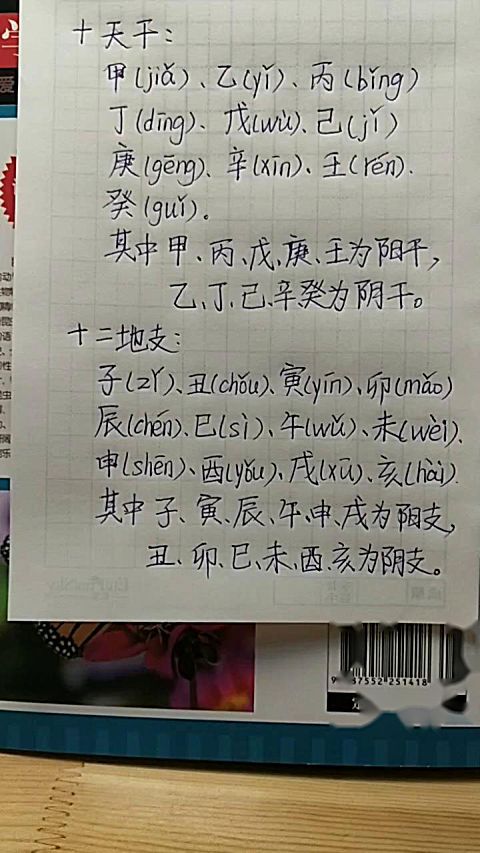 十天干：
甲(jiǎ)、乙(yǐ)、丙(bǐng)
丁(dīng)、戊(wù)、己(jǐ)
庚(gēng)、辛(xīn)、壬(rén)、
癸(guǐ)。
其中甲、丙、戊、庚、壬为阳干，
乙、丁、己、辛癸为阴干。
十二地支：
子(zǐ)、丑(chǒu)、寅(yín)、卯(mǎo)
辰(chén)、巳(sì)、午(wǔ)、未(wèi)、
申(shēn)、酉(yǒu)、戌(xū)、亥(hài)
其中子、寅、辰、午、申、戌为阳支，
丑、卯、巳、未、酉、亥为阴支。